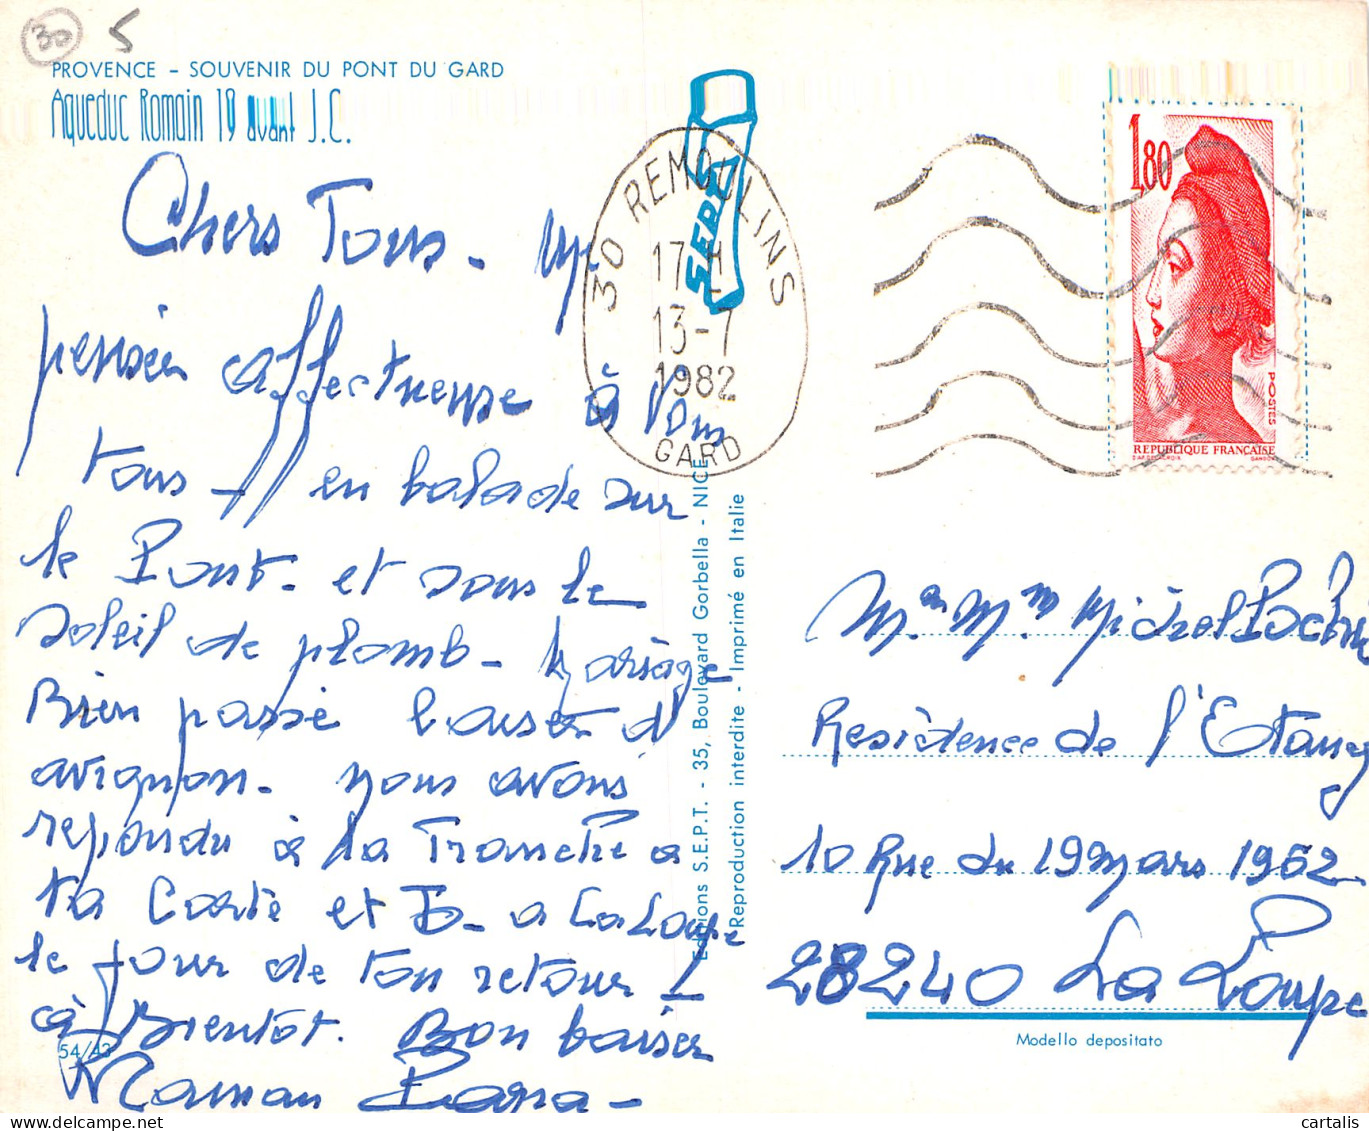 30 5
PROVENCE - SOUVENIR DU PONT DU GARD
Aqueduc Romain 19 avant J.C.
Chers Tous - une
pensée affectueuse à Vous
tous - en balade sur
le Pont - et sous le
soleil de plomb - Mariage
Bien passé causer d'
avignon - nous avons
repondu à la Tranche a
ta Carte et Tb - a La Loupe
le jour de ton retour !
à Bientôt. Bon baiser
Maman Papa -
54/43
SEPT
30 REMOULINS
17 H
13-7
1982
GARD
Editions S.E.P.T. - 35, Boulevard Gorbella - NICE
Reproduction interdite - Imprimé en Italie
1,80
POSTES
REPUBLIQUE FRANÇAISE
GANDON
Mr Mme Michel
Residence de l'Etang
10 Rue du 19 Mars 1962
28240 La Loupe
Modello depositato
cartalis